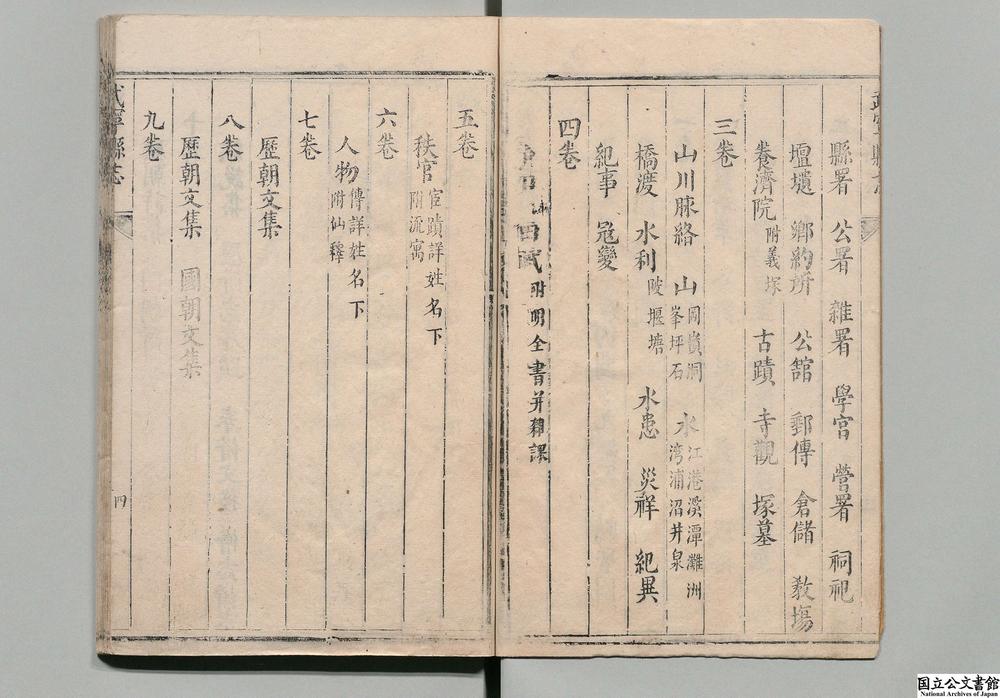 縣署 公署 雜署 學宮 營署 祠祀
壇壝 鄉約所 公舘 郵傳 倉儲 教塲
養濟院 附義塚 古蹟 寺觀 塚墓
三卷
山川脉絡 山 岡嶺洞峯坪石 水 江港溪潭灘洲湾浦沼井泉
橋渡 水利 陂堰塘 水患 災祥 紀異
紀事 㓂變
四卷
田賦 附明全書并雜課
五卷
秩官 宦蹟詳姓名下附流寓
六卷
人物 傳詳姓名下附仙釋
七卷
歷朝文集
八卷
歷朝文集 國朝文集
九卷
武寧縣志
四
国立公文書館
National Archives of Japan